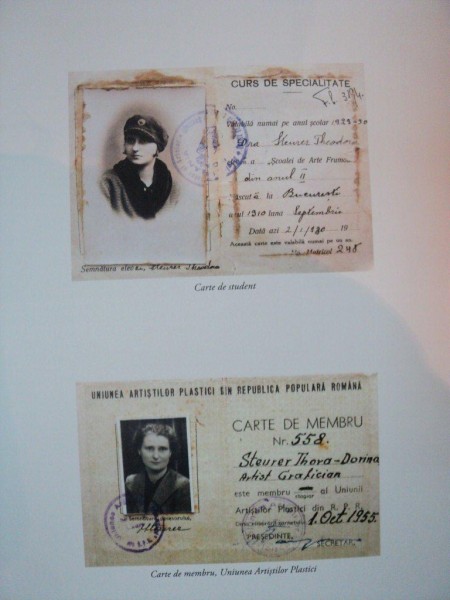 CURS DE SPECIALITATE
No.
Valabilă numai pe anul școlar 1929-30
Dra Steurer Theodora
a „Școalei de Arte Frumo
din anul II
născută la București
anul 1910 luna Septembrie
Dată azi 2/1/930 19
Această carte este valabilă numai pe un an.
No. Matricol 248
Semnătura elevei, Steurer Theodora
Carte de student
UNIUNEA ARTIȘTILOR PLASTICI DIN REPUBLICA POPULARĂ ROMÂNĂ
CARTE DE MEMBRU
Nr. 558.
Steurer Thora-Dorina
Artist Grafician
este membru al Uniunii
Artiștilor Plastici din R. P. R.
1. Oct. 1955.
PREȘEDINTE, SECRETAR,
Semnătura posesorului,
Steurer
Carte de membru, Uniunea Artiștilor Plastici